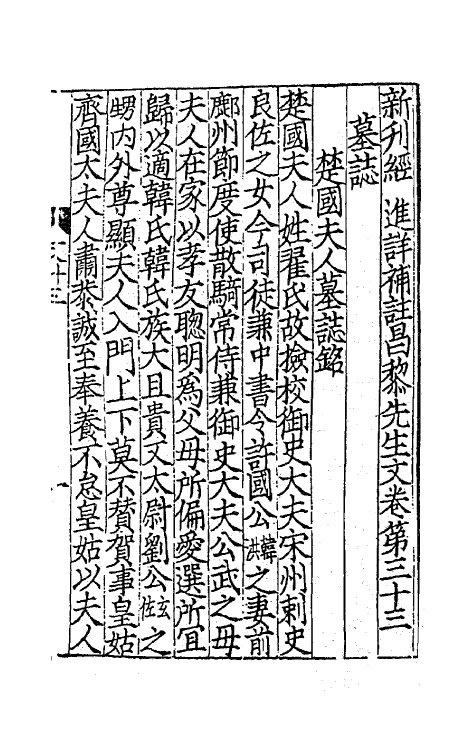 新刊經 進詳補註昌黎先生文卷第三十三
墓誌
楚國夫人墓誌銘
楚國夫人姓翟氏故撿校御史大夫宋州刺史
良佐之女今司徒兼中書令許國公韓洪之妻前
鄜州節度使散騎常侍兼御史大夫公武之母
夫人在家以孝友聦明為父母所偏愛選所宜
歸以適韓氏韓氏族大且貴又太尉劉公玄佐之
甥内外尊顯夫人入門上下莫不賛賀事皇姑
齊國太夫人肅恭誠至奉養不怠皇姑以夫人